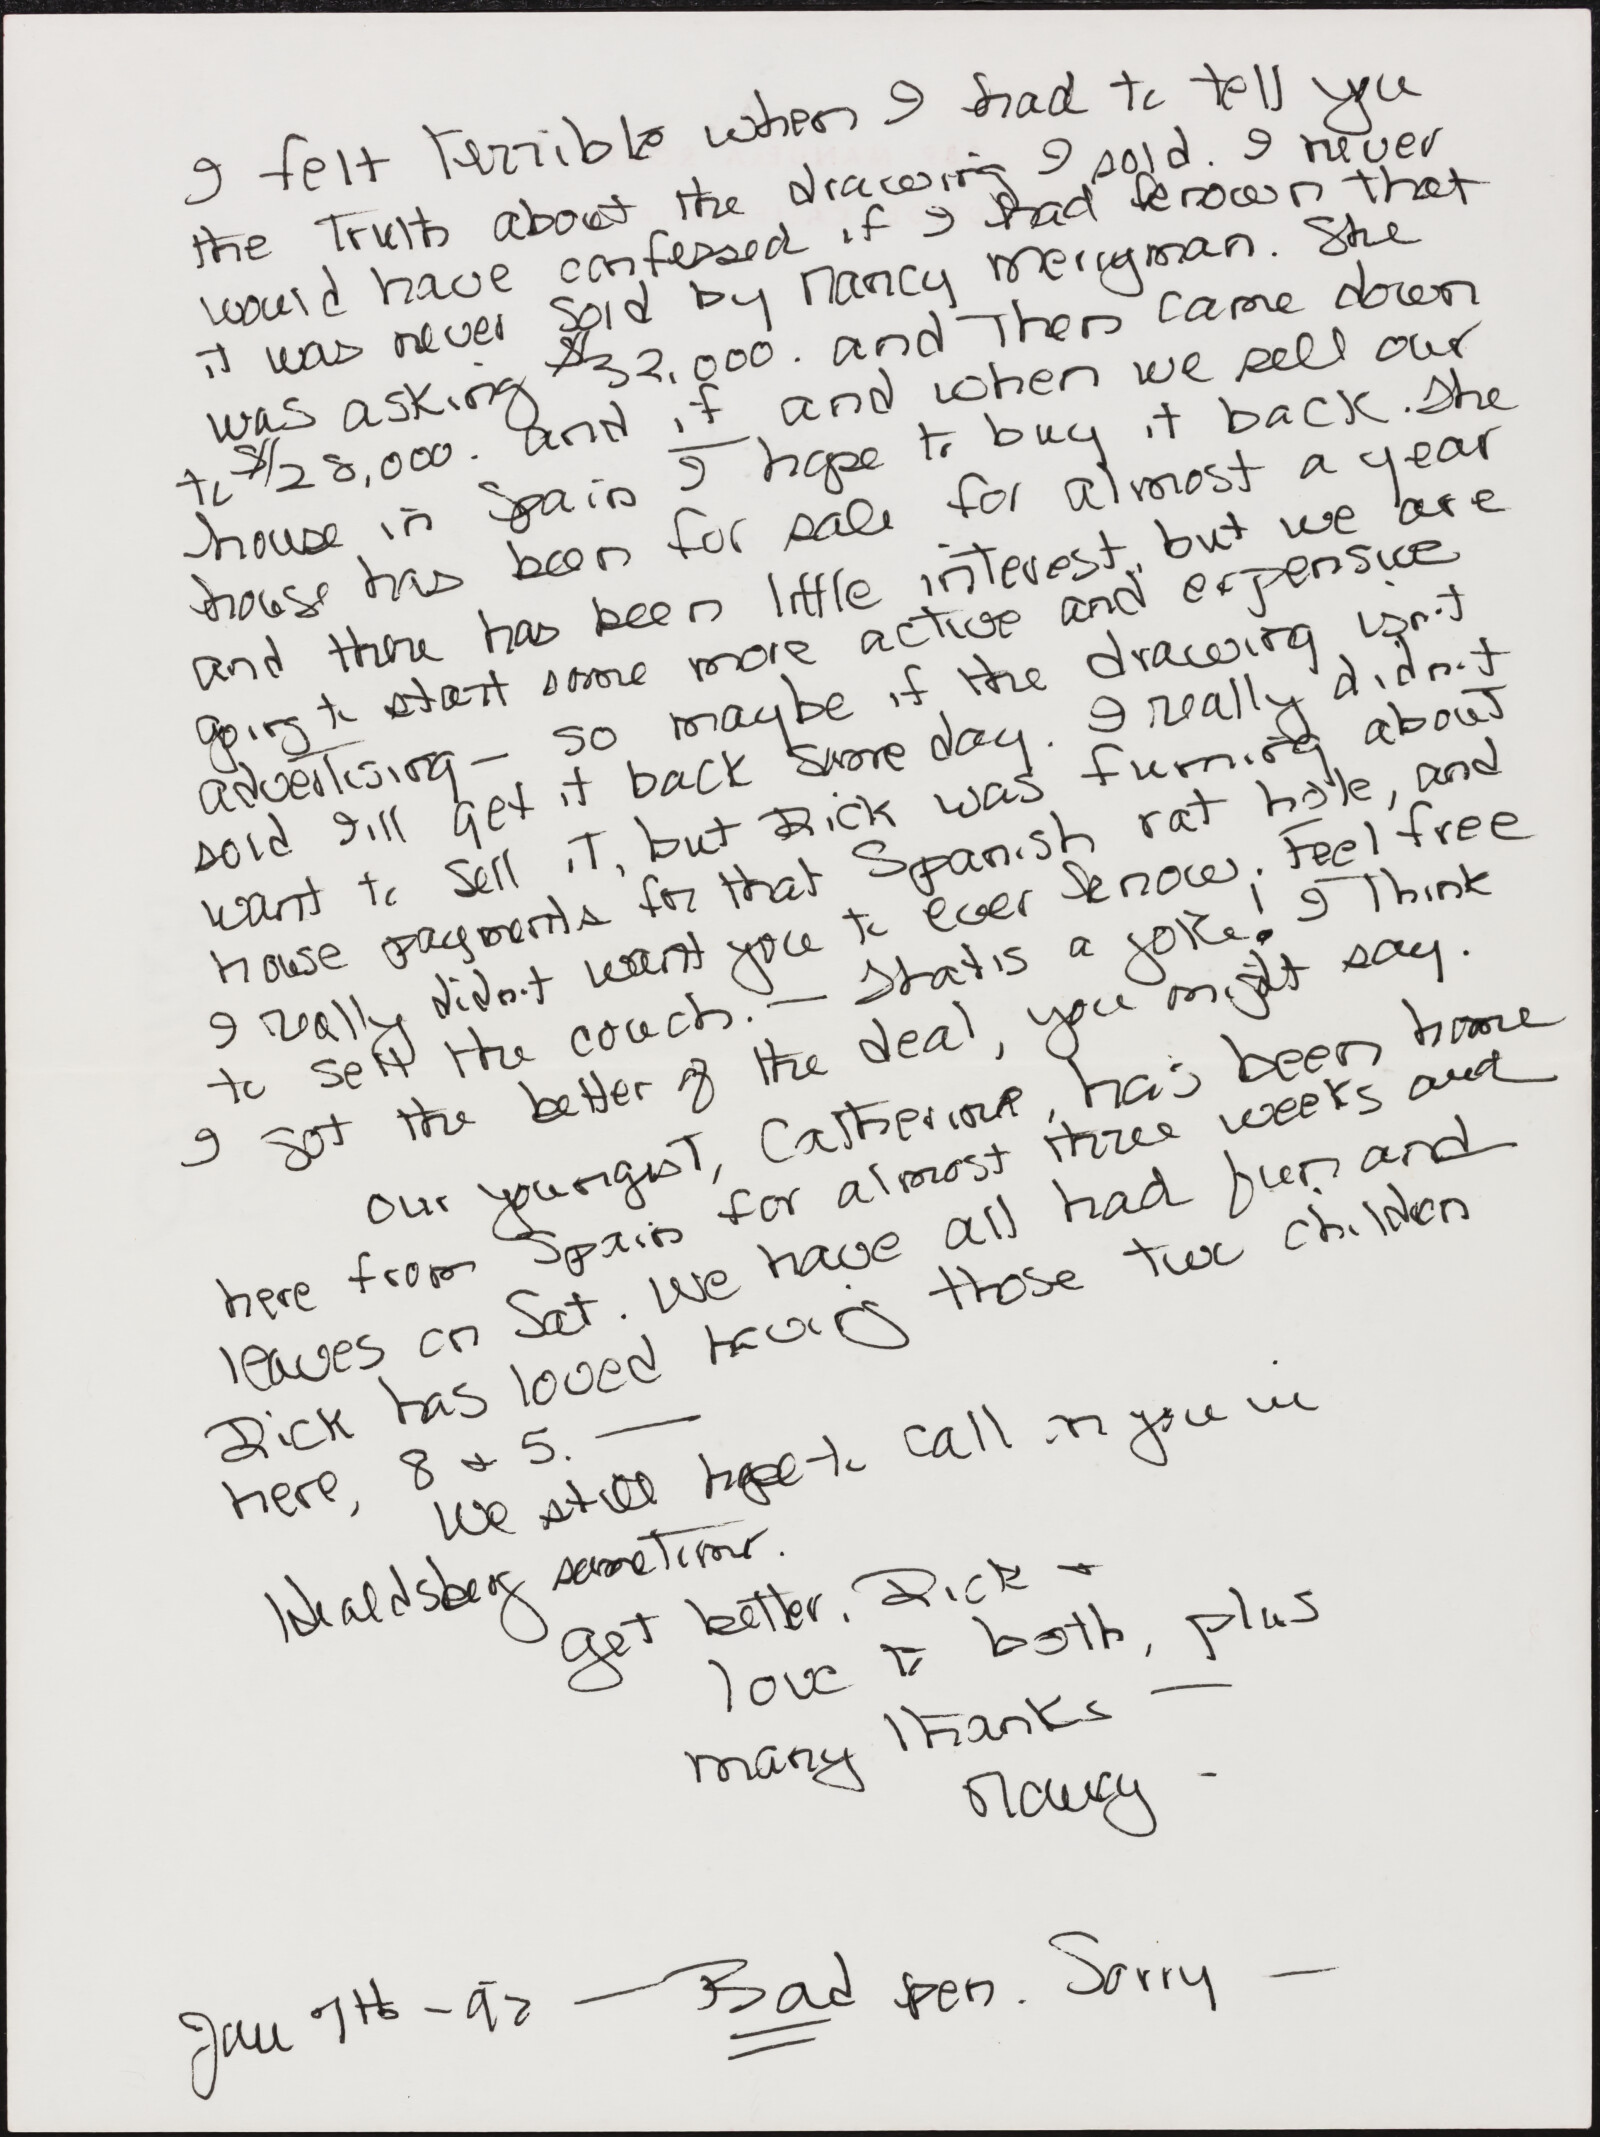 I felt terrible when I had to tell you
the Truth about the drawing I sold. I never
would have confessed if I had known that
it was never sold by Nancy Merryman. She
was asking $32,000. and Then came down
to $28,000. and if and when we sell our
house in Spain I hope to buy it back. The
house has been for sale for almost a year
and there has been little interest, but we are
going to start some more active and expensive
advertising — so maybe if the drawing isn't
sold I'll get it back some day. I really didn't
want to sell it, but Dick was fuming about
house payments for that Spanish rat hole, and
I really didn't want you to ever know. Feel free
to sell the couch. — That is a joke! I Think
I got the better of the deal, you might say.
Our youngest, Catherine, has been home
here from Spain for almost three weeks and
leaves on Sat. We have all had fun and
Dick has loved having those two children
here, 8 + 5. —
We still hope to call on you in
Healdsberg sometime.
Get better. Dick +
love to both, plus
many thanks —
Nancy -
Jan 7th - 92 — Bad pen. Sorry —